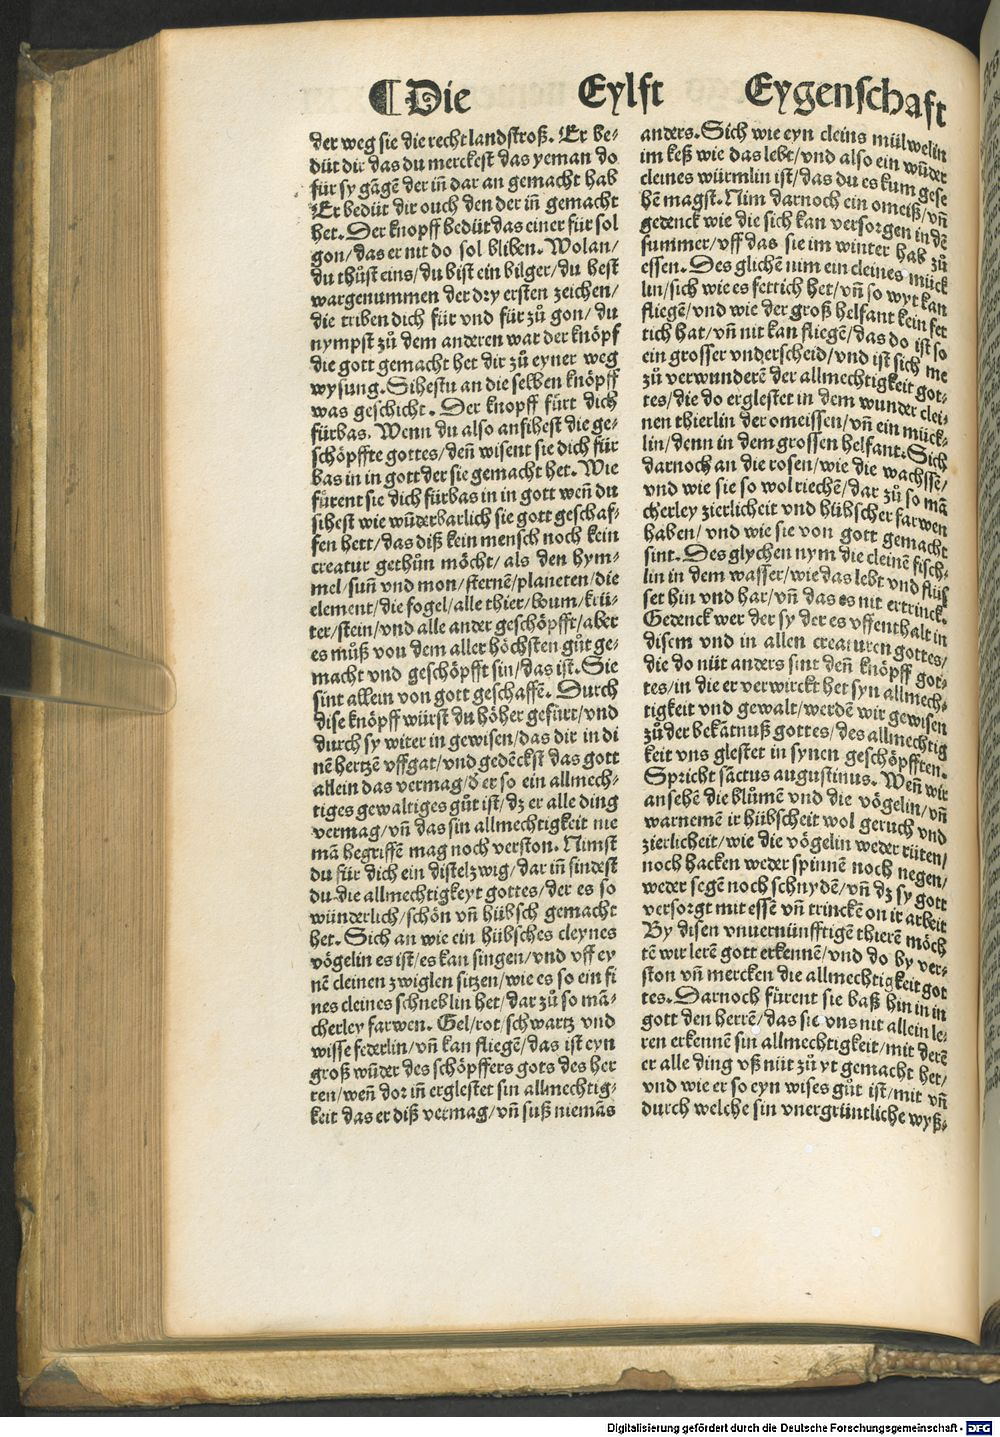 ¶Die Eylft Eygenschaft
der weg sie die recht landstroß. Er be⸗
düt dir das du merckest das yeman do
für sy gāgē der iñ dar an gemacht hab
Er bedüt dir ouch den der iñ gemacht
het. Der knopff bedüt das einer für sol
gon/das er nit do sol bliben. Wolan/
du thůst eins/du bist ein bilger/du hest
wargenummen der dry ersten zeichen/
die triben dich für vnd für zů gon/du
nympst zů dem anderen war der knöpf
die gott gemacht het dir zů eyner weg
wysung. Sihestu an die selben knöpff
was geschicht. Der knopff fürt dich
fürbas. Wenn du also ansihest die ge⸗
schöpffte gottes/deñ wisent sie dich für
bas in in gott der sie gemacht het. Wie
fürent sie dich fürbas in in gott weñ du
sihest wie wūderbarlich sie gott geschaf⸗
fen hett/das diß kein mensch noch kein
creatur gethůn möcht/als den hym⸗
mel/suñ vnd mon/sternē/planeten/die
element/die fogel/alle thier/boum/krü⸗
ter/stein/vnd alle ander geschöpfft/aber
es můß von dem aller höchsten gůt ge⸗
macht vnd geschöpfft sin/das ist. Sie
sint allein von gott geschaffē. Durch
dise knöpff würst du höher gefürt/vnd
durch sy witer in gewisen/das dir in di
nē hertzē vffgat/vnd gedēckst das gott
allein das vermag/der so ein allmech⸗
tiges gewaltiges gůt ist/dz er alle ding
vermag/vñ das sin allmechtigkeit nie
mā begriffē mag noch verston. Nimst
du für dich ein distelzwig/dar iñ findest
du die allmechtigkeyt gottes/der es so
wünderlich/schön vñ hübsch gemacht
het. Sich an wie ein hübsches cleynes
vögelin es ist/es kan singen/vnd vff ey
nē cleinen zwiglen sitzen/wie es so ein fi
nes cleines schneblin het/dar zů so mā⸗
cherley farwen. Gel/rot/schwartz vnd
wisse federlin/vñ kan fliegē/das ist eyn
groß wūder des schöpffers gots des her
ren/weñ dor iñ erglestet sin allmechtig⸗
keit das er diß vermag/vñ suß niemās
anders. Sich wie eyn cleins mülwelin
im keß wie das lebt/vnd also ein wūder
cleines würmlin ist/das du es kum gese
hē magst. Nim darnoch ein omeiß/vñ
gedenck wie die sich kan versorgen in dē
summer/vff das sie im winter hab zů
essen. Des glichē nim ein cleines mück
lin/sich wie es fettich het/vñ so wyt kan
fliegē/vnd wie der groß helfant kein fet
tich hat/vñ nit kan fliegē/das do ist so
ein grosser vnderscheid/vnd ist sich me
zů verwunderē der allmechtigkeit got⸗
tes/die do erglestet in dem wunder clei⸗
nen thierlin der omeissen/vñ ein mück⸗
lin/denn in dem grossen helfant. Sich
darnoch an die rosen/wie die wachssē/
vnd wie sie so wol riechē/dar zů so mā
cherley zierlicheit vnd hübscher farwen
haben/vnd wie sie von gott gemacht
sint. Des glychen nym die cleinē fisch⸗
lin in dem wasser/wie das lebt vnd flüs
set hin vnd har/vñ das es nit ertrinck.
Gedenck wer der sy der es vffenthalt in
disem vnd in allen creaturen gottes/
die do nüt anders sint deñ knöpff got⸗
tes/in die er verwirckt het syn allmech⸗
tigkeit vnd gewalt/werdē wir gewisen
zů der bekātnuß gottes/des allmechtig
keit vns glestet in synen geschöpfften.
Spricht sāctus augustinus. Weñ wir
ansehē die blůmē vnd die vögelin/vñ
warnemē ir hübscheit wol geruch vnd
zierlicheit/wie die vögelin weder rüten/
noch hacken weder spinnē noch negen/
weder segē noch schnydē/vñ dz sy gott
versorgt mit essē vñ trinckē on ir arbeit
By disen vnuernünfftigē thierē möch
tē wir lerē gott erkennē/vnd do by ver⸗
ston vñ mercken die allmechtigkeit got
tes. Darnoch fürent sie baß hin in in
gott den herrē/das sie vns nit allein le⸗
ren erkennē sin allmechtigkeit/mit derē
er alle ding vß nüt zů yt gemacht het/
vnd wie er so eyn wises gůt ist/mit vñ
durch welche sin vnergrüntliche wyß⸗
Digitalisierung gefördert durch die Deutsche Forschungsgemeinschaft - DFG